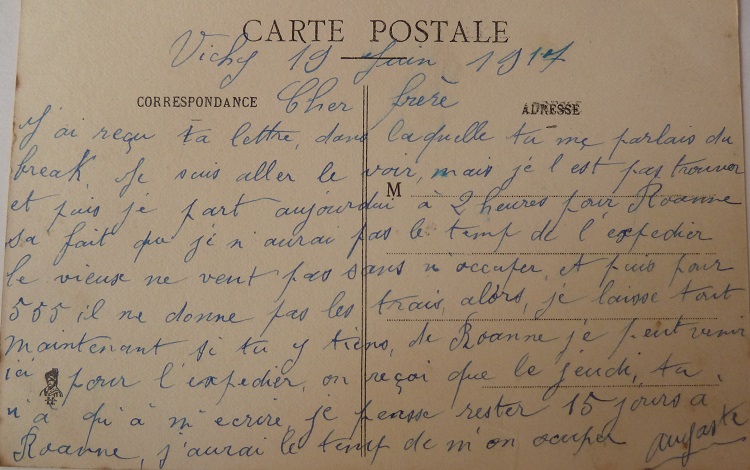 CARTE POSTALE
Vichy 19 Juin 1917
CORRESPONDANCE
ADRESSE
Cher frère
J'ai reçu ta lettre, dans laquelle tu me parlais du
break Je suis aller le voir, mais je l'est pas trouver
M
et puis je part aujourdui à 2 heures pour Roanne
sa fait que je n'aurai pas le temp de l'expedier
le vieux ne vent pas sans n'occuper, et puis pour
555 il ne donne pas les frais, alors, je laisse tout
Maintenant si tu y tiens, de Roanne je peut venir
ici pour l'expedier, on reçoi que le jeudi, tu
n'a qu'à m'ecrire, je pensse rester 15 jours à
Roanne, j'aurai le temp de m'on occuper
Auguste